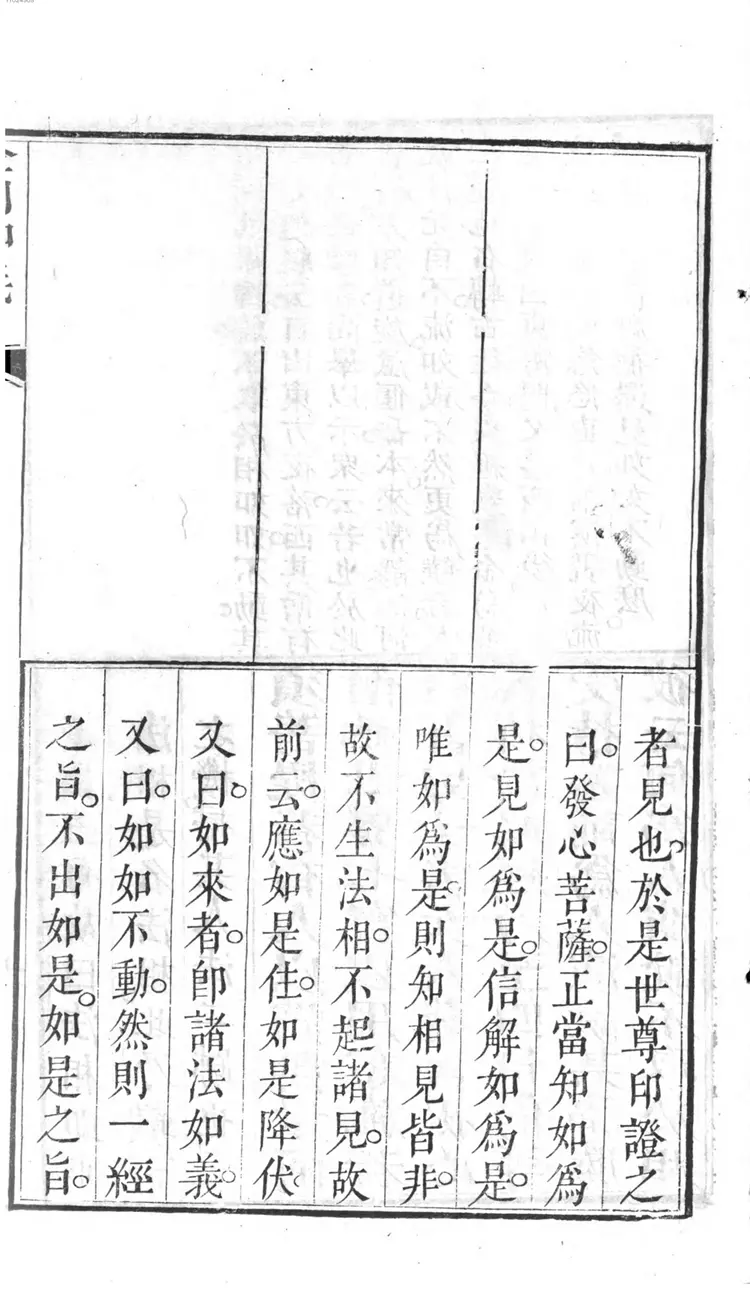 者見也。於是世尊印證之
曰。發心菩薩。正當知如爲
是。見如爲是。信解如爲是。
唯如爲是。則知相見皆非。
故不生法相。不起諸見。故
前云。應如是住。如是降伏。
又曰。如來者。卽諸法如義。
又曰。如如不動。然則一經
之旨。不出如是。如是之旨。